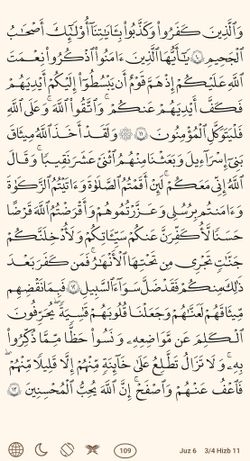 وَٱلَّذِينَ كَفَرُوا۟ وَكَذَّبُوا۟ بِـَٔايَـٰتِنَآ أُو۟لَـٰٓئِكَ أَصْحَـٰبُ
ٱلْجَحِيمِ ١٠ يَـٰٓأَيُّهَا ٱلَّذِينَ ءَامَنُوا۟ ٱذْكُرُوا۟ نِعْمَتَ
ٱللَّهِ عَلَيْكُمْ إِذْ هَمَّ قَوْمٌ أَن يَبْسُطُوٓا۟ إِلَيْكُمْ أَيْدِيَهُمْ
فَكَفَّ أَيْدِيَهُمْ عَنكُمْ ۖ وَٱتَّقُوا۟ ٱللَّهَ ۚ وَعَلَى ٱللَّهِ
فَلْيَتَوَكَّلِ ٱلْمُؤْمِنُونَ ١١ ۞ وَلَقَدْ أَخَذَ ٱللَّهُ مِيثَـٰقَ
بَنِىٓ إِسْرَٰٓءِيلَ وَبَعَثْنَا مِنْهُمُ ٱثْنَىْ عَشَرَ نَقِيبًا ۖ وَقَالَ
ٱللَّهُ إِنِّى مَعَكُمْ ۖ لَئِنْ أَقَمْتُمُ ٱلصَّلَوٰةَ وَءَاتَيْتُمُ ٱلزَّكَوٰةَ
وَءَامَنتُم بِرُسُلِى وَعَزَّرْتُمُوهُمْ وَأَقْرَضْتُمُ ٱللَّهَ قَرْضًا
حَسَنًا لَّأُكَفِّرَنَّ عَنكُمْ سَيِّـَٔاتِكُمْ وَلَأُدْخِلَنَّكُمْ
جَنَّـٰتٍ تَجْرِى مِن تَحْتِهَا ٱلْأَنْهَـٰرُ ۚ فَمَن كَفَرَ بَعْدَ
ذَٰلِكَ مِنكُمْ فَقَدْ ضَلَّ سَوَآءَ ٱلسَّبِيلِ ١٢ فَبِمَا نَقْضِهِم
مِّيثَـٰقَهُمْ لَعَنَّـٰهُمْ وَجَعَلْنَا قُلُوبَهُمْ قَـٰسِيَةً ۖ يُحَرِّفُونَ
ٱلْكَلِمَ عَن مَّوَاضِعِهِۦ ۙ وَنَسُوا۟ حَظًّا مِّمَّا ذُكِّرُوا۟
بِهِۦ ۚ وَلَا تَزَالُ تَطَّلِعُ عَلَىٰ خَآئِنَةٍ مِّنْهُمْ إِلَّا قَلِيلًا مِّنْهُمْ ۖ
فَٱعْفُ عَنْهُمْ وَٱصْفَحْ ۚ إِنَّ ٱللَّهَ يُحِبُّ ٱلْمُحْسِنِينَ ١٣
109 Juz 6 3/4 Hizb 11